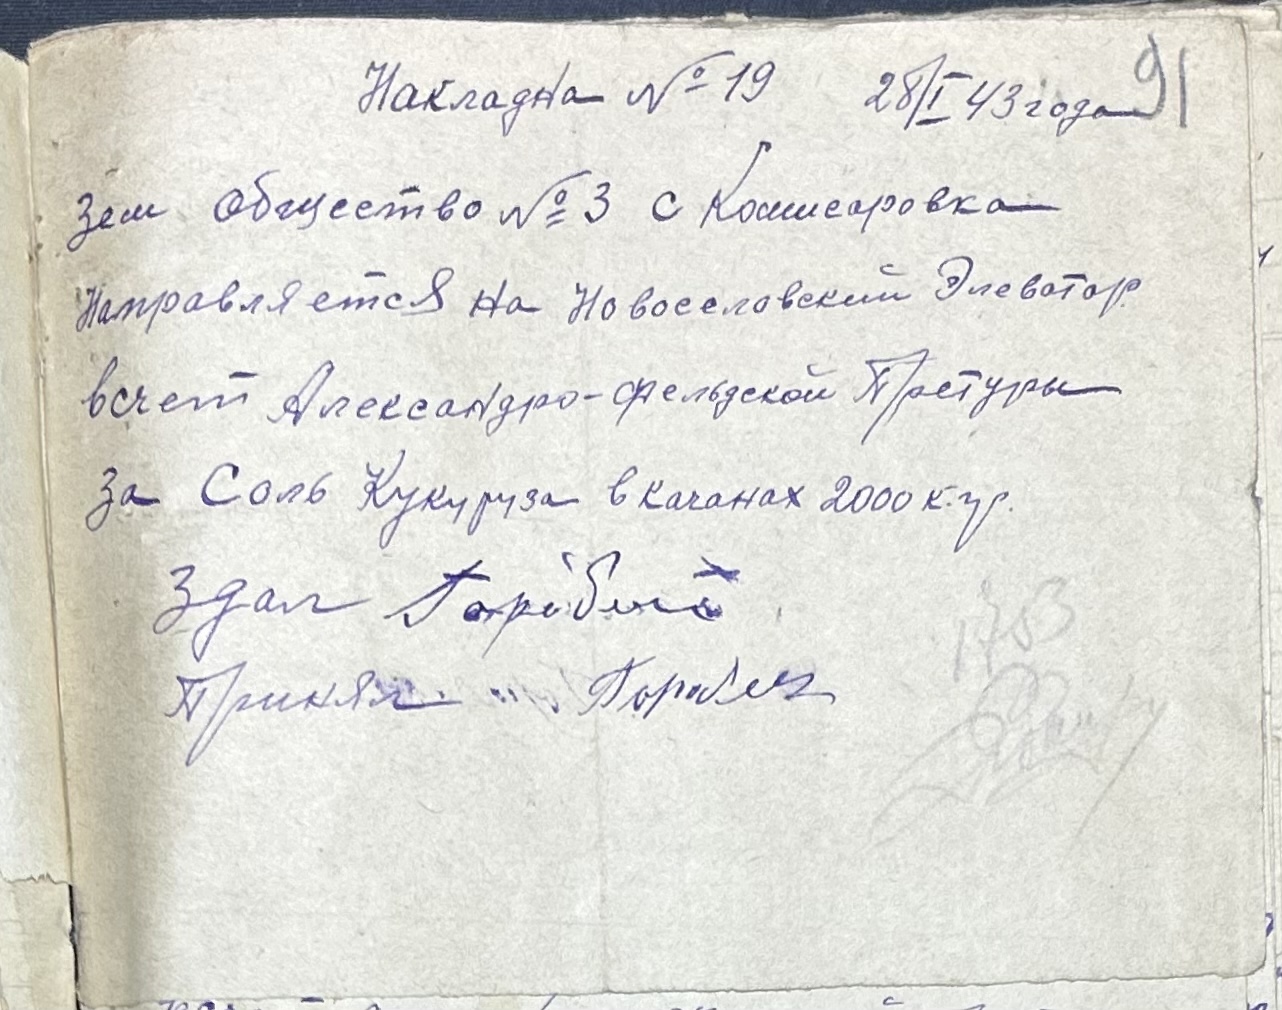 Накладна № 19 28/I 43 года 91
Зем Общество № 3 с Комисаровка
Направляется на Новоселовский Элеватор
всчет Александро-фельдской Претуры
за Соль Кукуруза в качанах 2000 к.гр.
Здал
Принял
1753